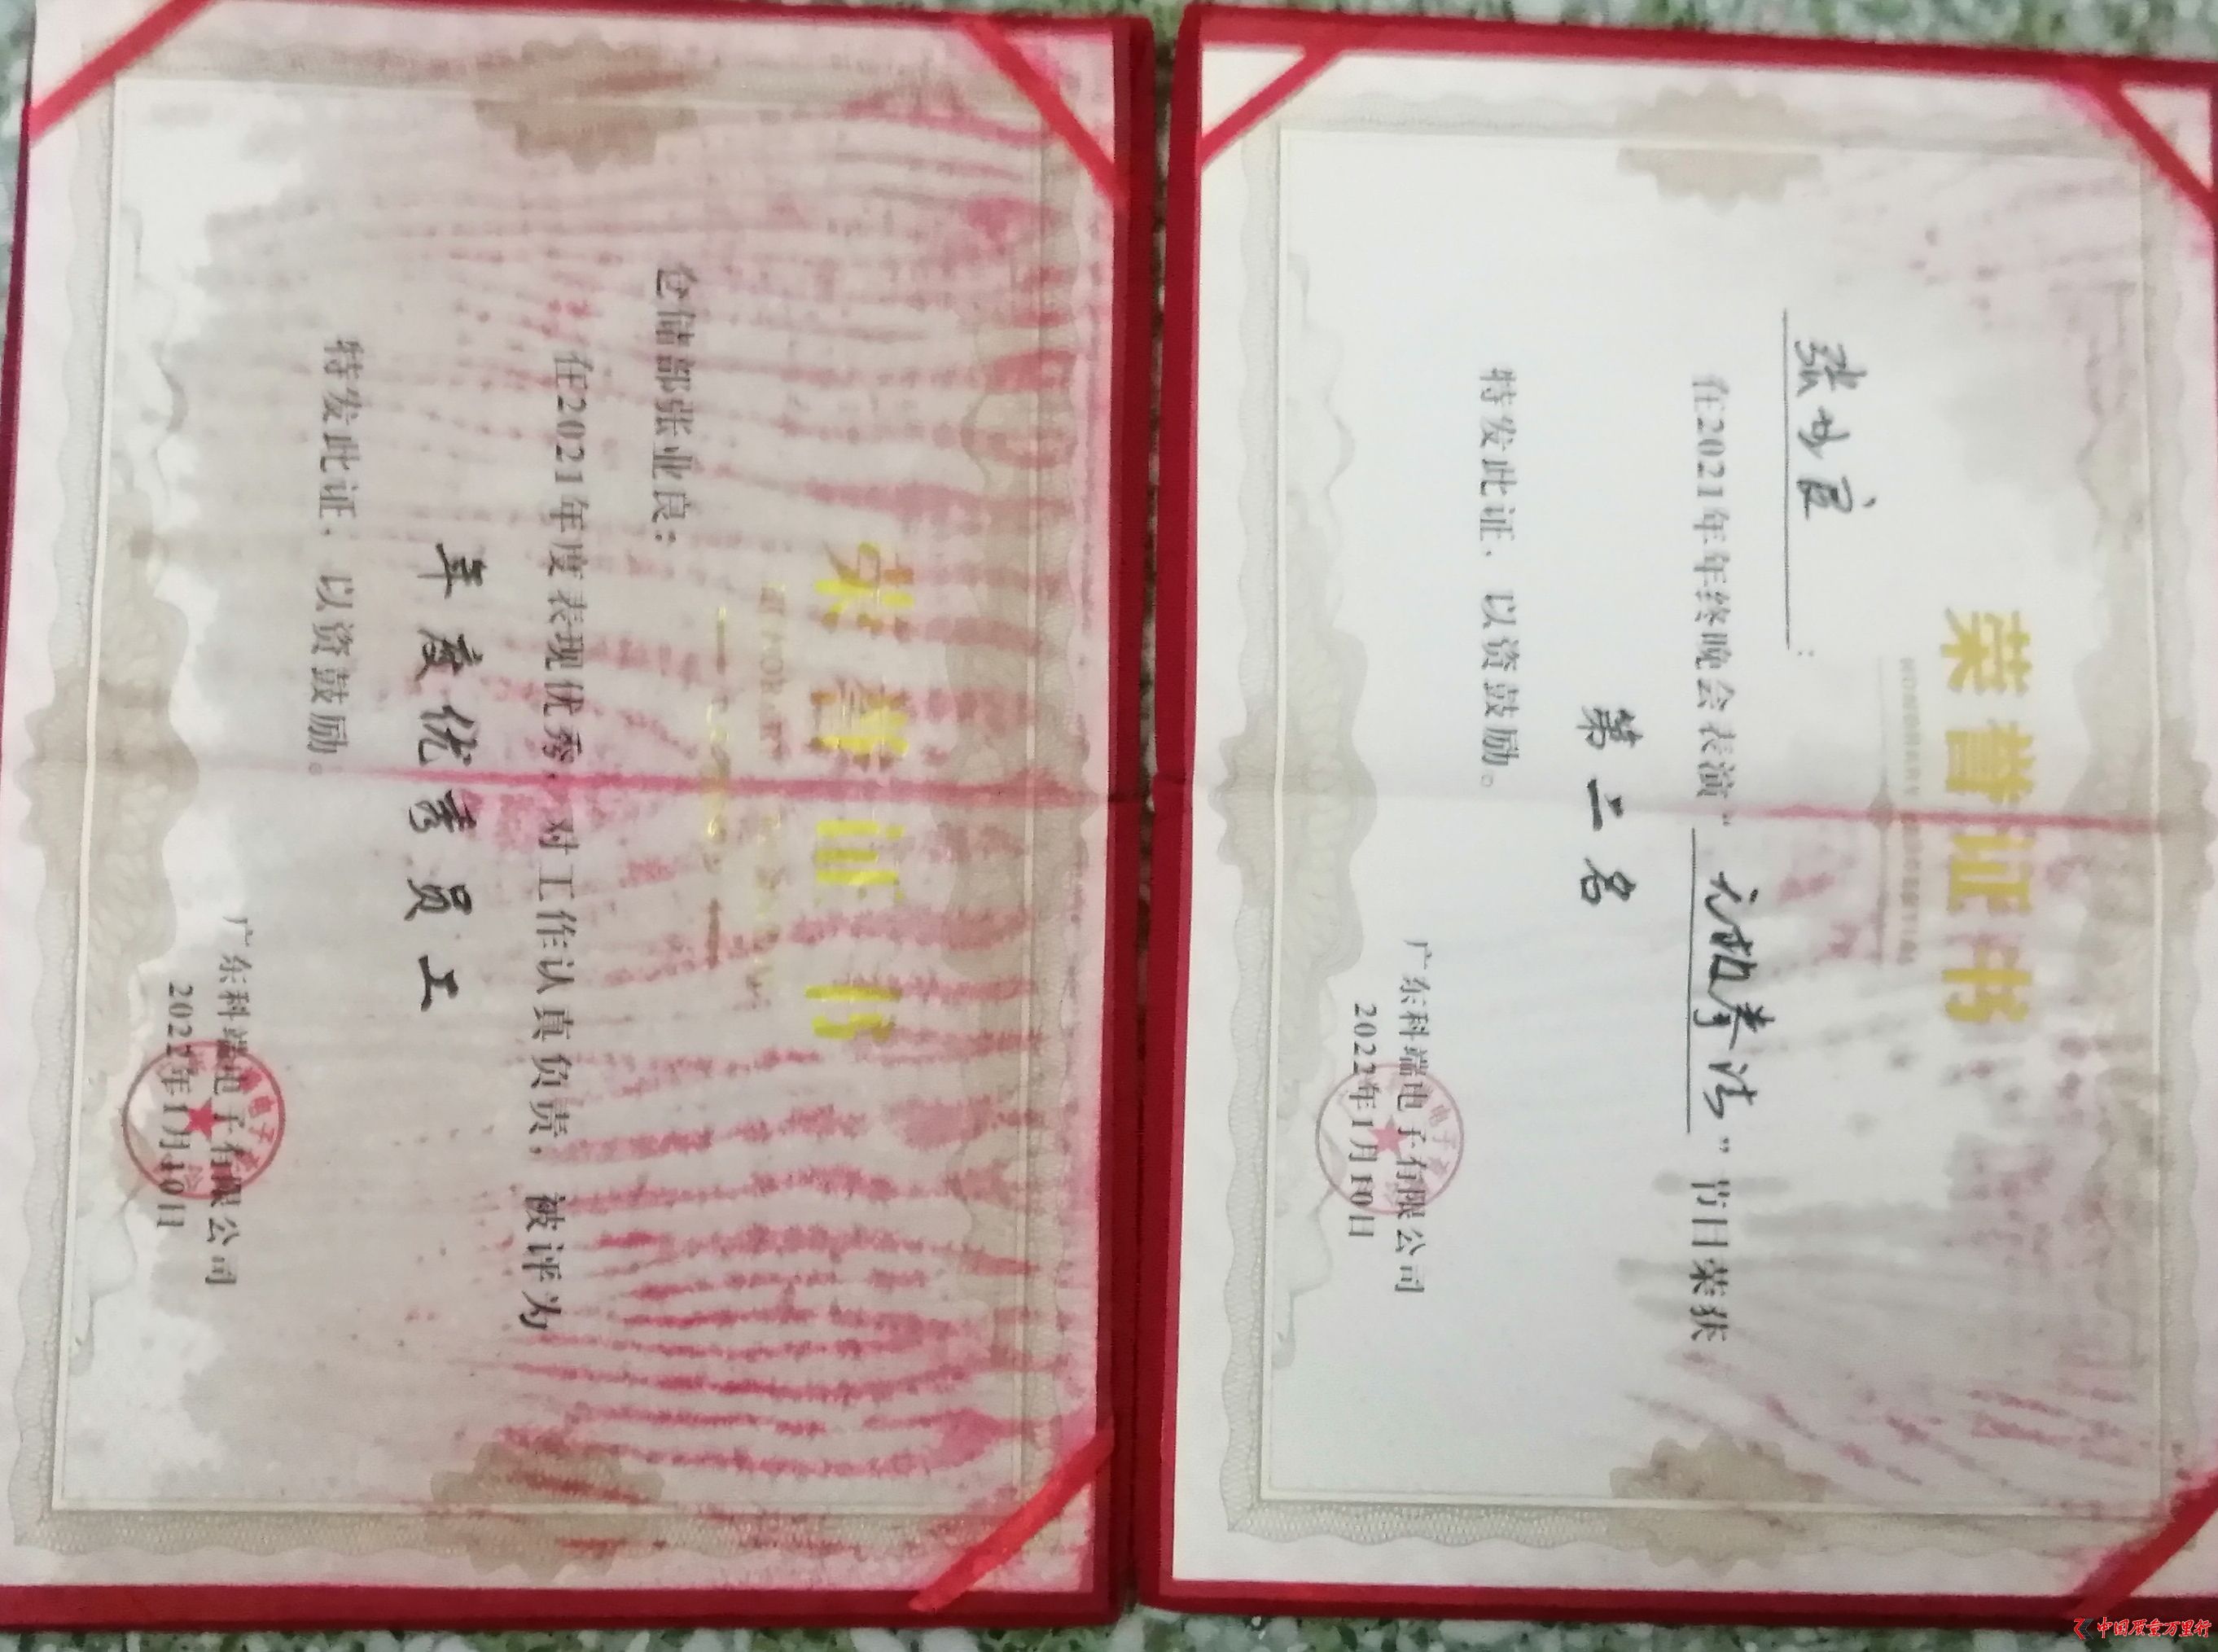 荣誉证书
张业良：
在2021年年终晚会表演“元极拳法”节目荣获
第二名
特发此证，以资鼓励。
广东科端电子有限公司
2022年1月10日
荣誉证书
仓储部张业良：
在2021年度表现优秀，对工作认真负责，被评为
年度优秀员工
特发此证，以资鼓励。
广东科端电子有限公司
2022年1月10日
中国质量万里行